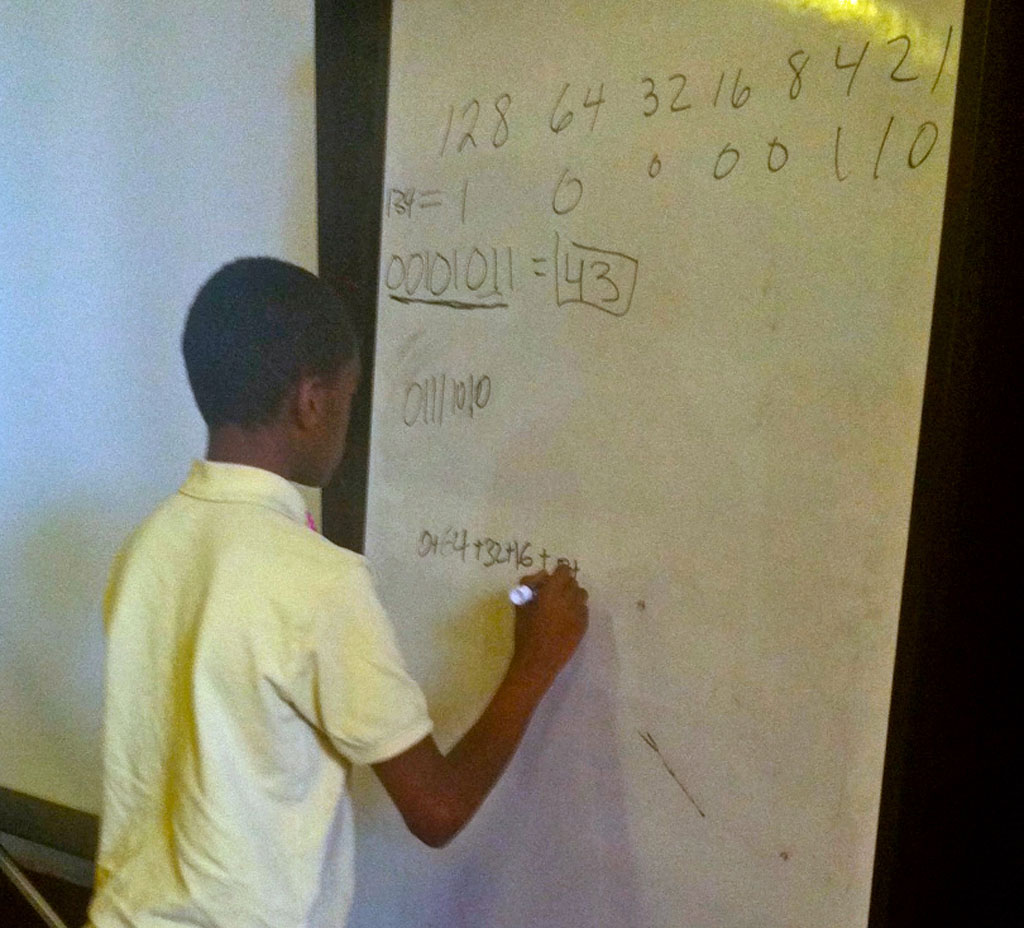 128 64 32 16 8 4 2 1
134= 1 0 0 0 0 1 1 0
00101011 = 43
01111010
0+64+32+16+